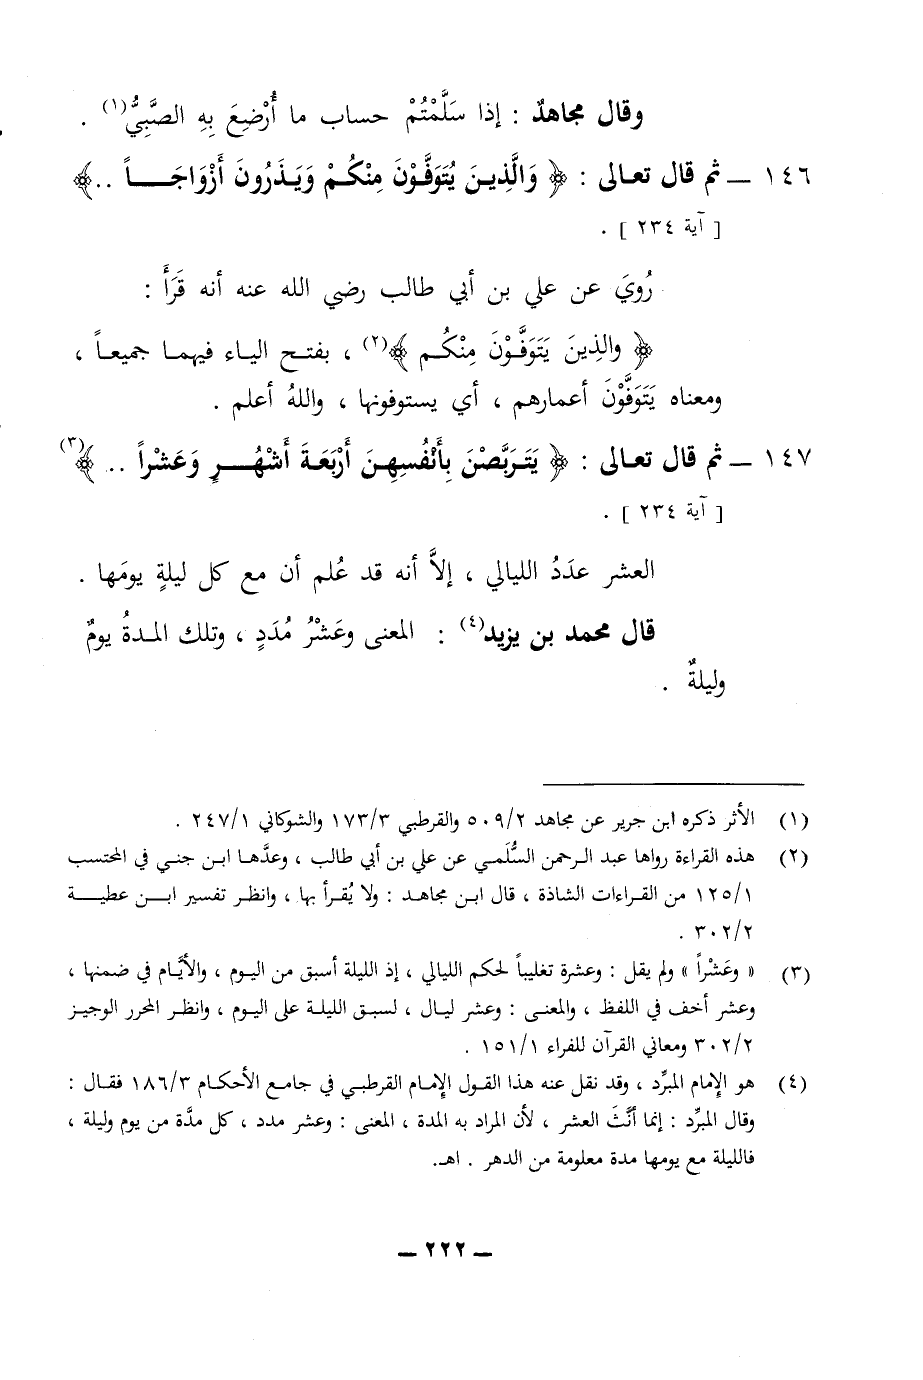 وقال مجاهدٌ : إذا سَلَّمْتُمْ حساب ما أُرْضِعَ بِهِ الصَّبِيُّ(١) .
١٤٦ ــ ثم قال تعالى : ﴿ وَالَّذِينَ يُتَوَفَّوْنَ مِنْكُمْ وَيَذَرُونَ أَزْوَاجَـــاً ..﴾
[ آية ٢٣٤ ] .
رُويَ عن علي بن أبي طالب رضي الله عنه أنه قَرَأَ :
﴿ والذِينَ يَتَوَفَّوْنَ مِنْكُم ﴾(٢) ، بفتح الياء فيهما جميعاً ،
ومعناه يَتَوَفَّوْنَ أعمارهم ، أي يستوفونها ، واللهُ أعلم .
١٤٧ ــ ثم قال تعالى : ﴿ يَتَرَبَّصْنَ بِأَنْفُسِهِنَ أَرْبَعَةَ أَشْهُــرٍ وَعَشْراً .. ﴾(٣)
[ آية ٢٣٤ ] .
العشر عدَدُ الليالي ، إلاَّ أنه قد عُلم أن مع كل ليلةٍ يومَها .
قال محمد بن يزيد(٤) : المعنى وعَشْرُ مُدَدٍ ، وتلك المدةُ يومٌ
وليلةٌ .
(١) الأثر ذكره ابن جرير عن مجاهد ٥٠٩/٢ والقرطبي ١٧٣/٣ والشوكاني ٢٤٧/١ .
(٢) هذه القراءة رواها عبد الرحمن السُّلَمي عن علي بن أبي طالب ، وعدَّها ابن جني في المحتسب
١٢٥/١ من القراءات الشاذة ، قال ابن مجاهد : ولا يُقرأ بها ، وانظر تفسير ابن عطية
٣٠٢/٢ .
(٣) « وعَشْراً » ولم يقل : وعشرة تغليباً لحكم الليالي ، إذ الليلة أسبق من اليوم ، والأيَّام في ضمنها ،
وعشر أخف في اللفظ ، والمعنى : وعشر ليال ، لسبق الليلة على اليوم ، وانظر المحرر الوجيز
٣٠٢/٢ ومعاني القرآن للفراء ١٥١/١ .
(٤) هو الإمام المبرِّد ، وقد نقل عنه هذا القول الإمام القرطبي في جامع الأحكام ١٨٦/٣ فقال :
وقال المبرِّد : إنما أنَّثَ العشر ، لأن المراد به المدة ، المعنى : وعشر مدد ، كل مدَّة من يوم وليلة ،
فالليلة مع يومها مدة معلومة من الدهر . اهـ.
ــ ٢٢٢ ــ